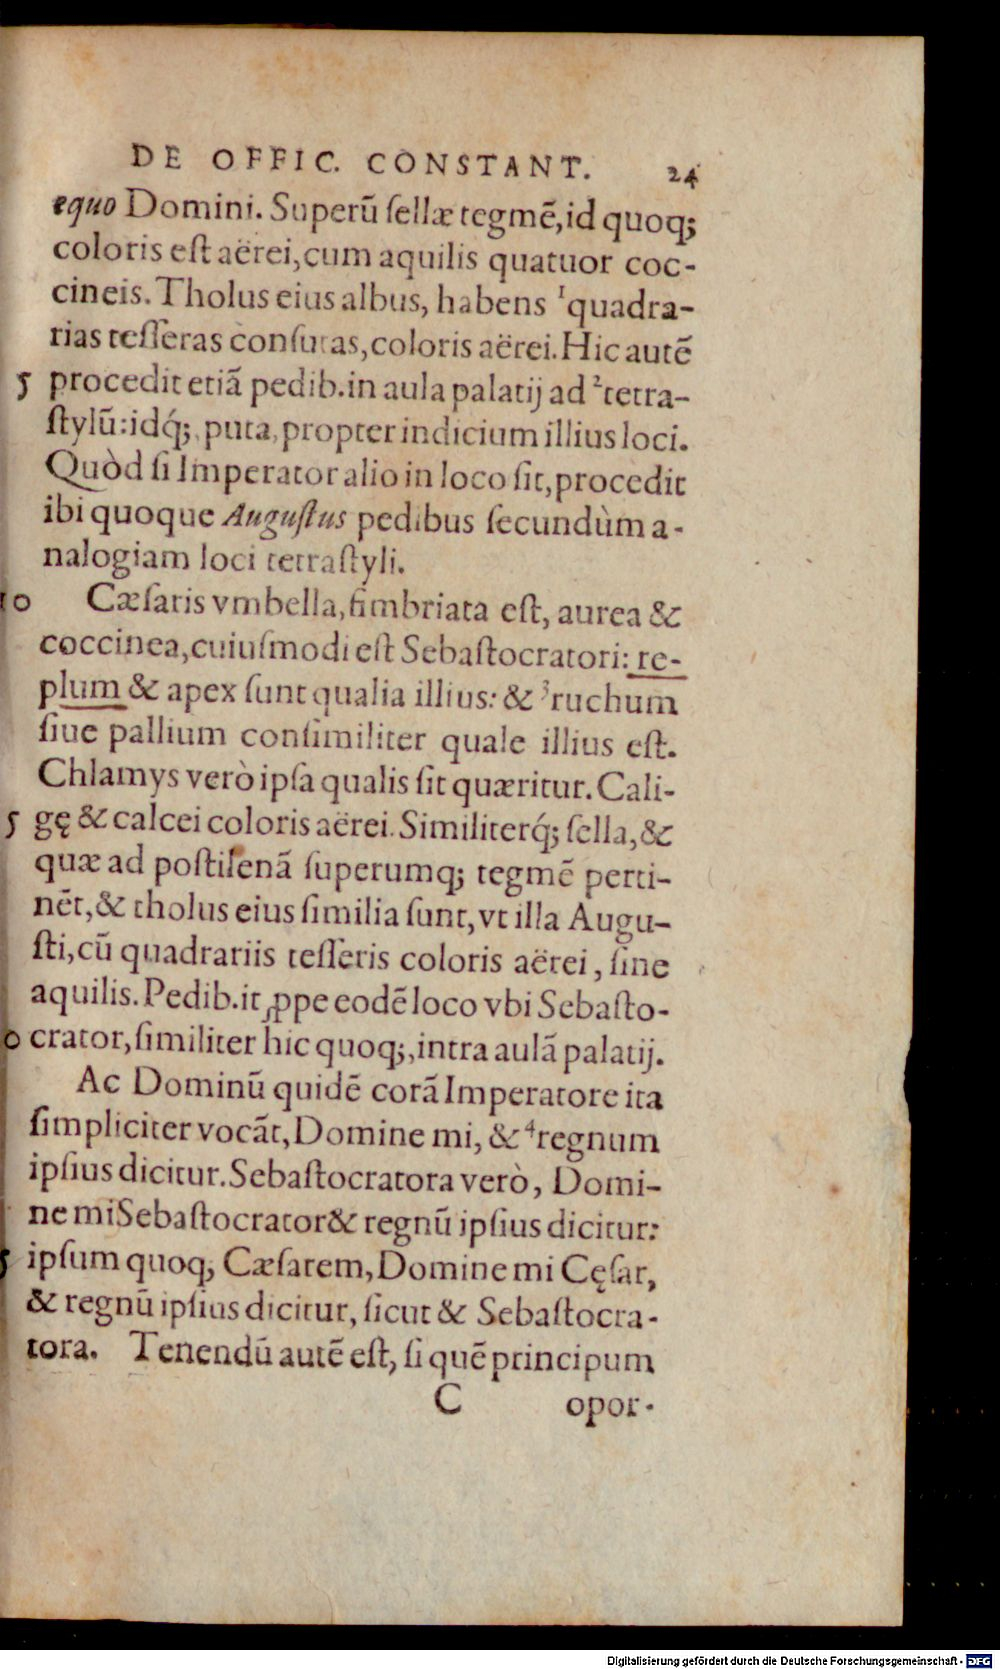 DE OFFIC. CONSTANT. 24
equo Domini. Superũ ſellæ tegmẽ, id quoq;
coloris eſt aërei, cum aquilis quatuor coc-
cineis. Tholus eius albus, habens ¹quadra-
rias teſſeras conſutas, coloris aërei. Hic autẽ
5 procedit etiã pedib. in aula palatij ad ²tetra-
ſtylũ: idq́;, puta, propter indicium illius loci.
Quòd ſi Imperator alio in loco ſit, procedit
ibi quoque Auguſtus pedibus ſecundùm a-
nalogiam loci tetraſtyli.
10 Cæſaris vmbella, fimbriata eſt, aurea &
coccinea, cuiuſmodi eſt Sebaſtocratori: re-
plum & apex ſunt qualia illius: & ³ruchum
ſiue pallium conſimiliter quale illius eſt.
Chlamys verò ipſa qualis ſit quæritur. Cali-
5 gę & calcei coloris aërei. Similiterq́; ſella, &
quæ ad poſtilenã ſuperumq; tegmẽ perti-
nẽt, & tholus eius ſimilia ſunt, vt illa Augu-
ſti, cũ quadrariis teſſeris coloris aërei, ſine
aquilis. Pedib. it ꝓpe eodẽ loco vbi Sebaſto-
0 crator, ſimiliter hic quoq;, intra aulã palatij.
Ac Dominũ quidẽ corã Imperatore ita
ſimpliciter vocãt, Domine mi, & ⁴regnum
ipſius dicitur. Sebaſtocratora verò, Domi-
ne mi Sebaſtocrator & regnũ ipſius dicitur:
5 ipſum quoq; Cæſarem, Domine mi Cęſar,
& regnũ ipſius dicitur, ſicut & Sebaſtocra-
tora. Tenendũ autẽ eſt, ſi quẽ principum
C opor-
Digitalisierung gefördert durch die Deutsche Forschungsgemeinschaft - DFG